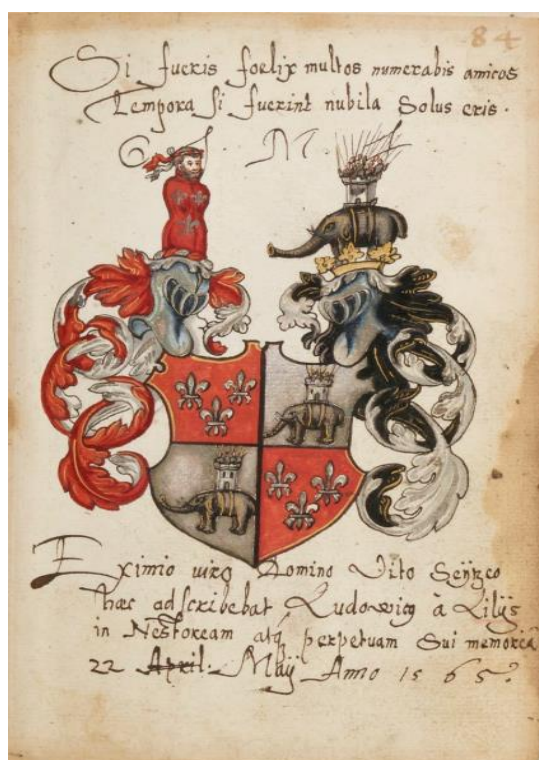 84
Si fueris foelix multos numerabis amicos
Tempora si fuerint nubila Solus eris.
M
Eximio uiro Domino Vito
hæc adscribebat Ludowicq à Lilijs
in Nestoream atq perpetuam Sui memoriã
22 April. Maij Anno 1565.